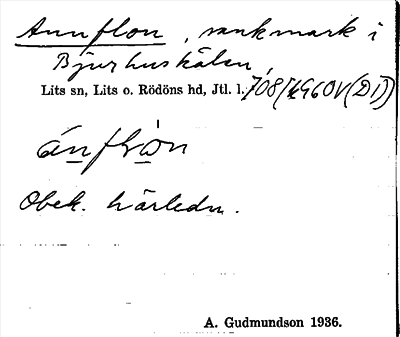 Annflon, sankmark i
Bjurhuskälen,
Lits sn, Lits o. Rödöns hd, Jtl. l.
ánflòn
Obek. härledn.
A. Gudmundson 1936.